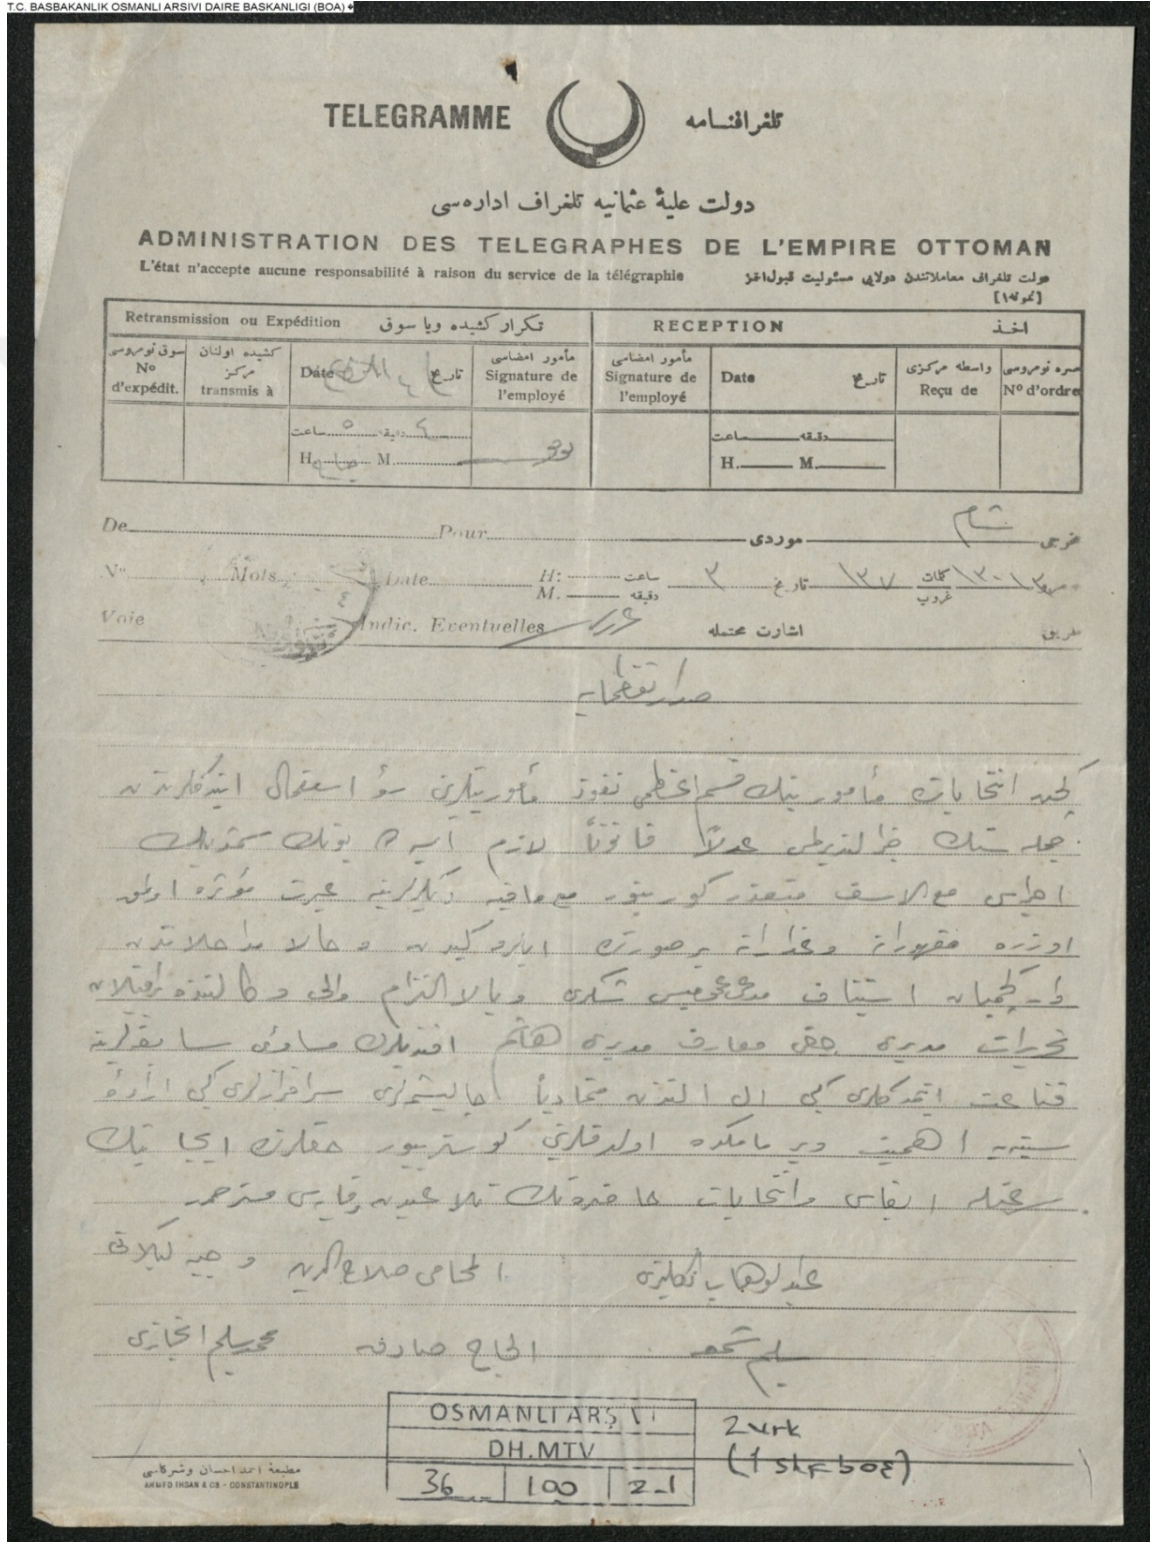 T.C. BASBAKANLIK OSMANLI ARSIVI DAIRE BASKANLIGI (BOA)
TELEGRAMME تلغرافنامه
دولت عليهٔ عثمانيه تلغراف اداره‌سی
ADMINISTRATION DES TELEGRAPHES DE L'EMPIRE OTTOMAN
L'état n'accepte aucune responsabilité à raison du service de la télégraphie
دولت تلغراف معاملاتندن دولايی مسئوليت قبول ايتمز
Retransmission ou Expédition تكرار كشيده ويا سوق
RECEPTION اخذ
سوق نومروسی
Nº d'expédit.
كشيده اولنان مركز
transmis à
Date تاريخ
مأمور امضاسی
Signature de l'employé
مأمور امضاسی
Signature de l'employé
Date تاريخ
واسطه مركزی
Reçu de
صره نومروسی
Nº d'ordre
ساعت ٥ دقيقه ٤
H. M.
ساعت دقيقه
H. M.
De Pour موردی مخرجی شام
Nº Mots Date H: ساعت
M. دقيقه ٣ تاريخ ١٣٧ كلمات
غروپ
Voie Indic. Eventuelles اشارت محتمله طريق
صدارت عظمايه
انتخابات مأمورينك قسم اعظمی نفوذ مأموريتلرينی سوء استعمال ايتدكلرندن
جمله‌سنك عدلاً قانوناً لازم ايسه ده بونك
اجراسی مع الاسف متعذر كورينور مع مافيه ديكرلرينه عبرت مؤثره اولمق
اوزره وغدارانه برصورتده ايلرو كيدن وحالا مداخلاتدن
استيناف مدعی عموميسی شكری وبالالتزام والی وكالتنده براقيلان
تحريرات مديری حقی معارف مديری هاشم افنديلرك مساوئ سابقه‌لرينه
قناعت ايتمدكلری كبی ال التندن متمادياً چاليشمه‌لری سرافرازلری كبی ارادهٔ
سنيه‌يه اهميت ويرمامكده اولدقلرينی كوستريور حقلرنده ايجابنك
سرعتله ايفاسی وانتخابات حاضره‌نك تلاعبدن وقايه‌سی مسترحمدر
عبدالوهاب انكليزی المحامی صلاح الدين وجيه كيلانی
سليم الحاج صادق محمد سليم
OSMANLI ARŞİVİ
DH.MTV
36 100 2-1
2 vrk
(1 shf boş)
مطبعهٔ احمد احسان وشركاسی
AHMED IHSAN & Cº - CONSTANTINOPLE